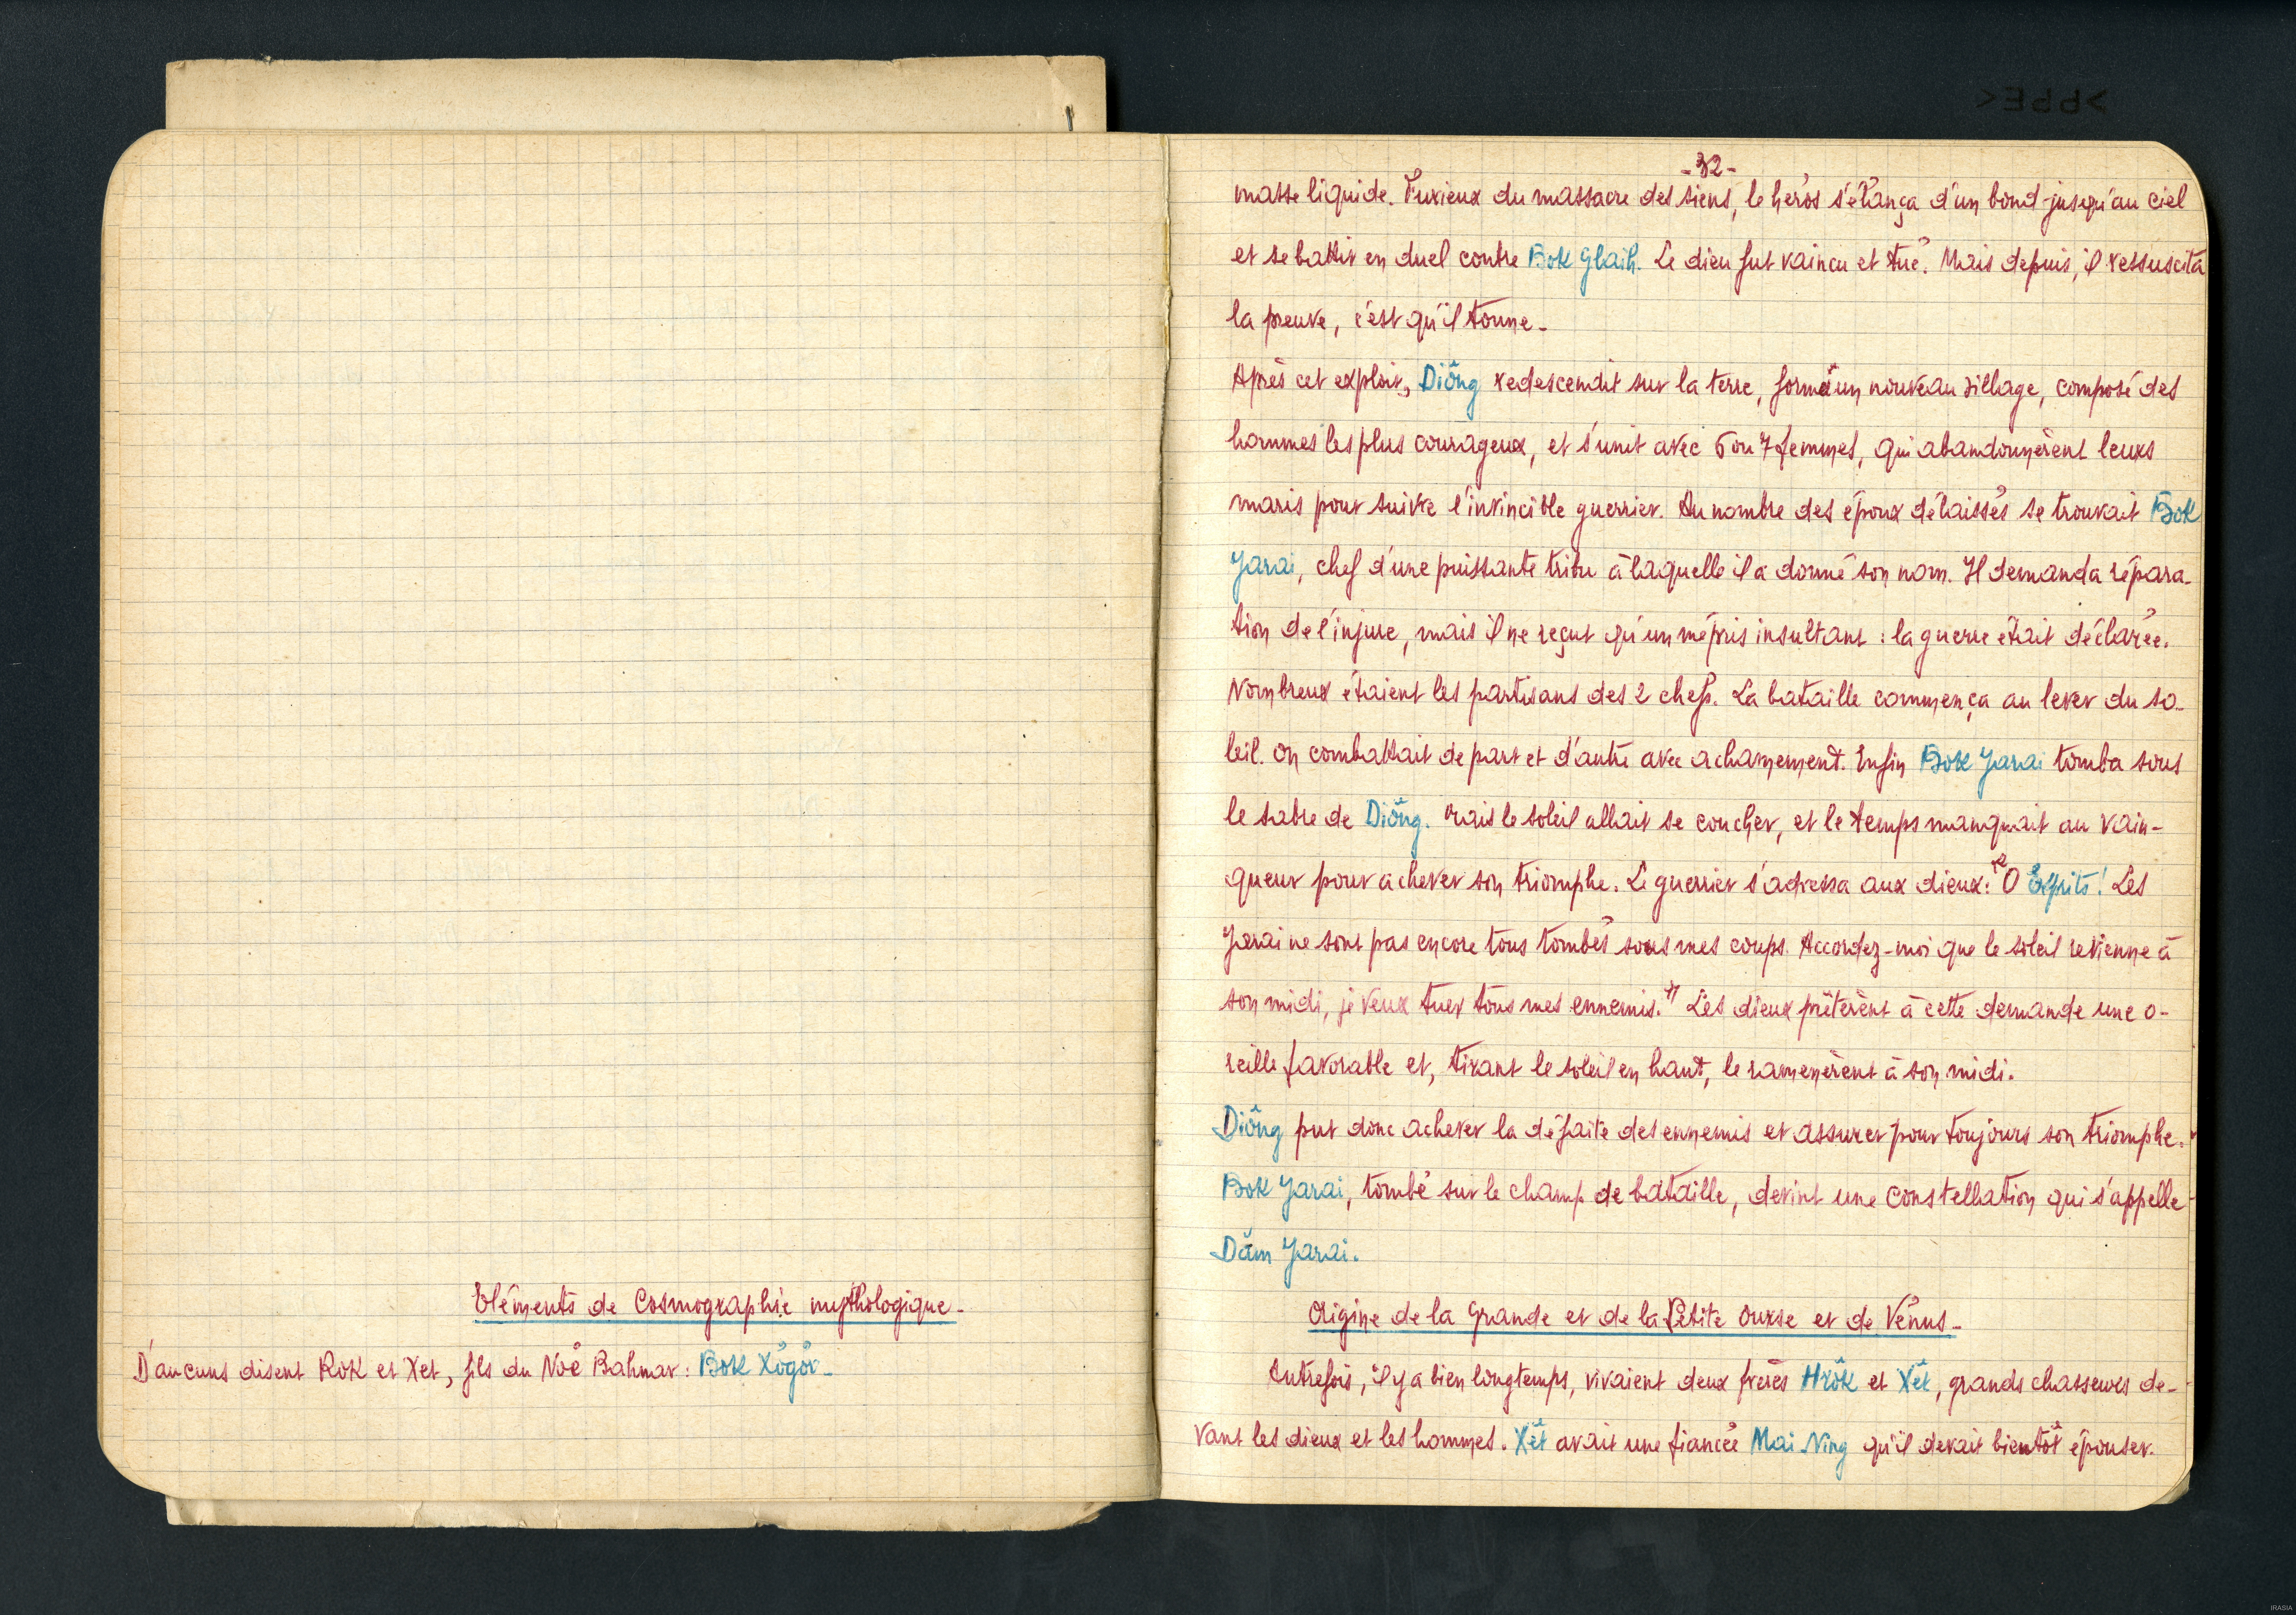 Eléments de Cosmographie mythologique-
D'aucuns disent Rok et Xet, fils du Noé Bahnar: Bok Xögör-
-32-
masse liquide. Furieux du massacre des siens, le héros s'élança d'un bond jusqu'au ciel
et se battit en duel contre Bok Glaih. Le dieu fut vaincu et tué. Mais depuis, il ressuscita
la preuve, c'est qu'il tonne-
Après cet exploit, Diông redescendit sur la terre, forma un nouveau village, composé des
hommes les plus courageux, et s'unit avec 6 ou 7 femmes, qui abandonnèrent leurs
maris pour suivre l'invincible guerrier. Au nombre des époux délaissés se trouvait Bok
Yarai, chef d'une puissante tribu à laquelle il a donné son nom. Il demanda répara-
tion de l'injure, mais il ne reçut qu'un mépris insultant : la guerre était déclarée.
Nombreux étaient les partisans des 2 chefs. La bataille commença au lever du so-
leil. On combattait de part et d'autre avec acharnement. Enfin Bok Yarai tomba sous
le sabre de Diông. Mais le soleil allait se coucher, et le temps manquait au vain-
queur pour achever son triomphe. Le guerrier s'adressa aux dieux: "O Esprits! Les
Yarai ne sont pas encore tous tombés sous mes coups. Accordez-moi que le soleil revienne à
son midi, je veux tuer tous mes ennemis." Les dieux prêtèrent à cette demande une o-
reille favorable et, tirant le soleil en haut, le ramenèrent à son midi.
Diông put donc achever la défaite des ennemis et assurer pour toujours son triomphe.
Bok Yarai, tombé sur le champ de bataille, devint une constellation qui s'appelle
Dăm Yarai.
Origine de la Grande et de la Petite Ourse et de Vénus-
Autrefois, il y a bien longtemps, vivaient deux frères Hrôk et Xêt, grands chasseurs de-
vant les dieux et les hommes. Xêt avait une fiancée Mai Ning qu'il devait bientôt épouser.
IRASIA